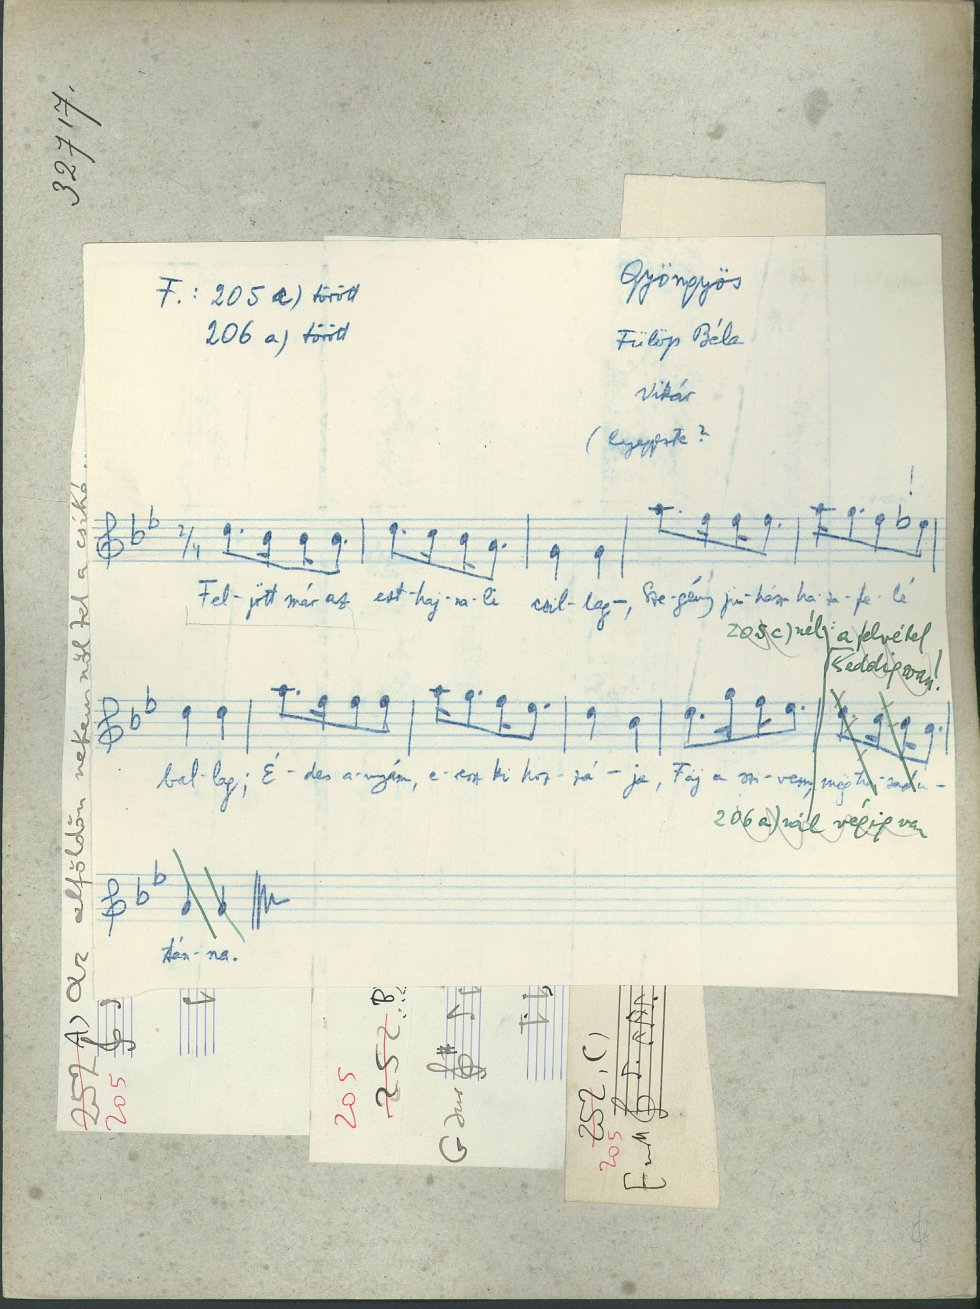 32717.
F.: 205 c) törött
206 a) törött
Gyöngyös
Fülöp Béla
Vikár
(lejegyezte?
2/4
!
Fel-jött már az est-haj-na-li csil-lag-, Sze-gény ju-hász ha-za-fe-lé
205 c) nél: a felvétel
eddig van!
bal-lag; É-des a-nyám, e-resz ki hoz-zá-ja, Fáj a szi-vem,
206 a) nál végig van
-na.
A) Az alföldön nekem nőtt fel a csikó
257
205
205
252. B.
G dur
252. C)
205